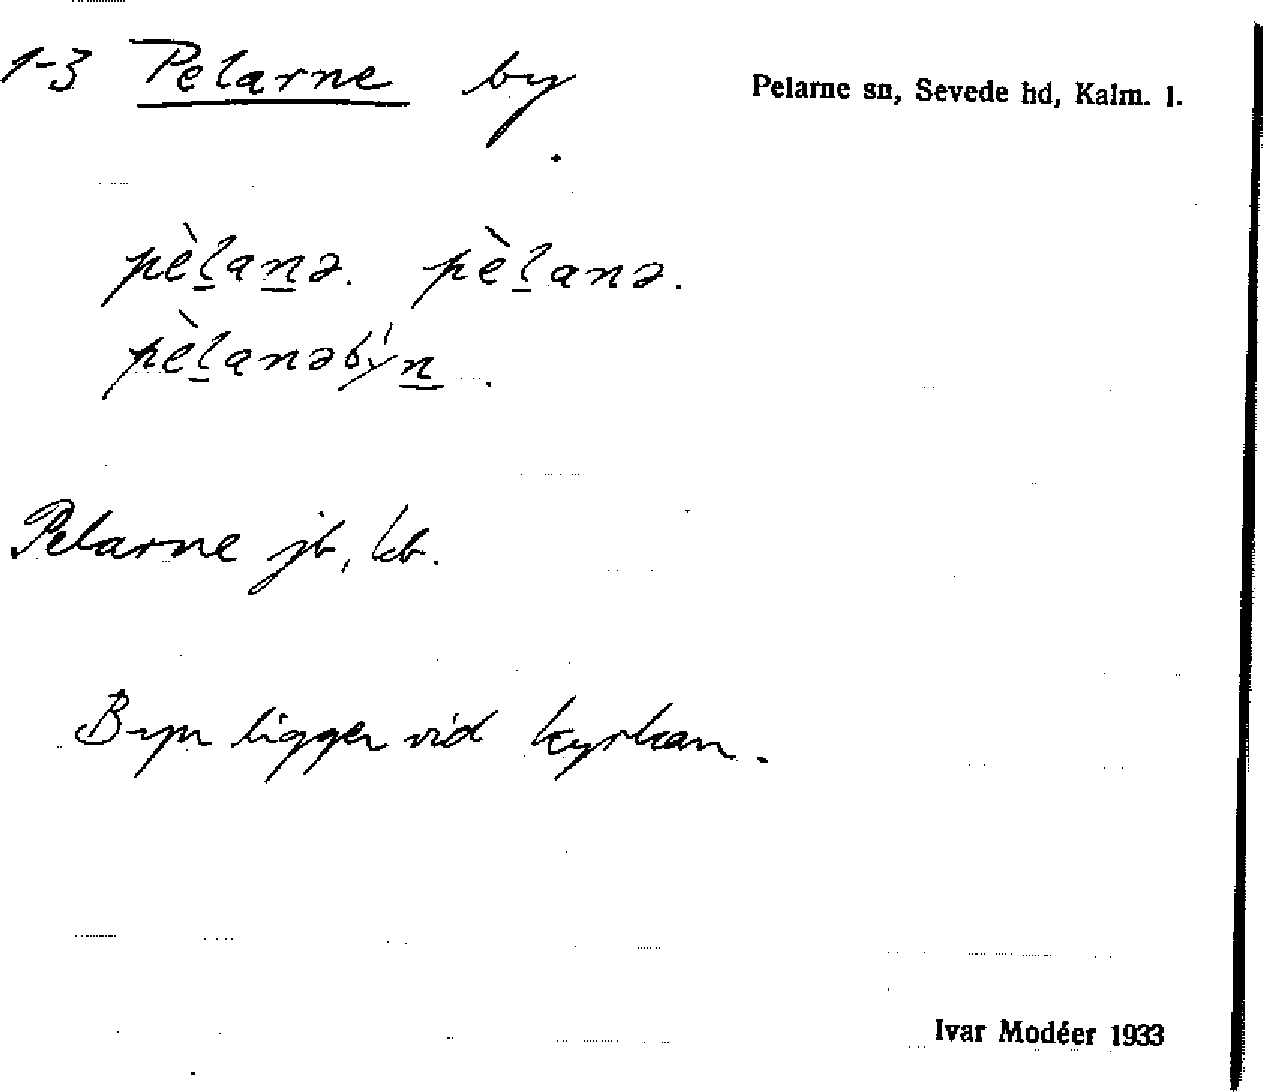 1-3 Pelarne by
Pelarne sn, Sevede hd, Kalm. l.
pèl̠an̠ə. pèl̠anə.
pèl̠anəbýn̠.
Pelarne jb, kb.
Byn ligger vid kyrkan.
Ivar Modéer 1933